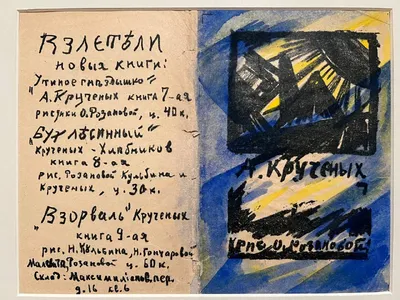 Взлетѣли
новыя книги:
„Утиное гнездышко"
А. Крученых книга 7-ая
рисунки О. Розановой, ц. 40 к,
„Бух лѣсинный"
крученых - Хлѣбников
книга 8-ая
рис. Розановой Кульбина и
Крученых, ц. 30 к.
„Взорваль" Крученых
книга 9-ая
рис. Н. Кульбина, Н. Гончаровой
Розановой ц. 60 к.
Склад: Максимилiанов. пер.
д. 16 кв. 6
А. Крученых
рис. О. Розановой